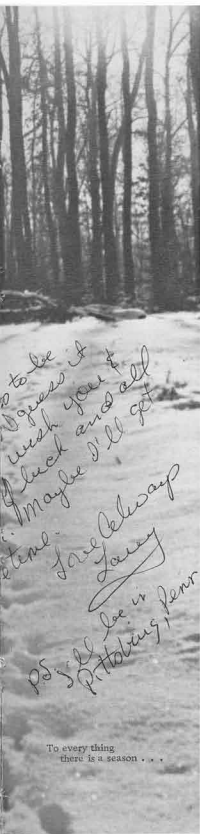 s to be
I guess it
wish you &
luck and all
Maybe I'll get
etime.
Love Always
Larry
P.S. I'll be in
Pittsburg, Penn
To every thing
there is a season . . .